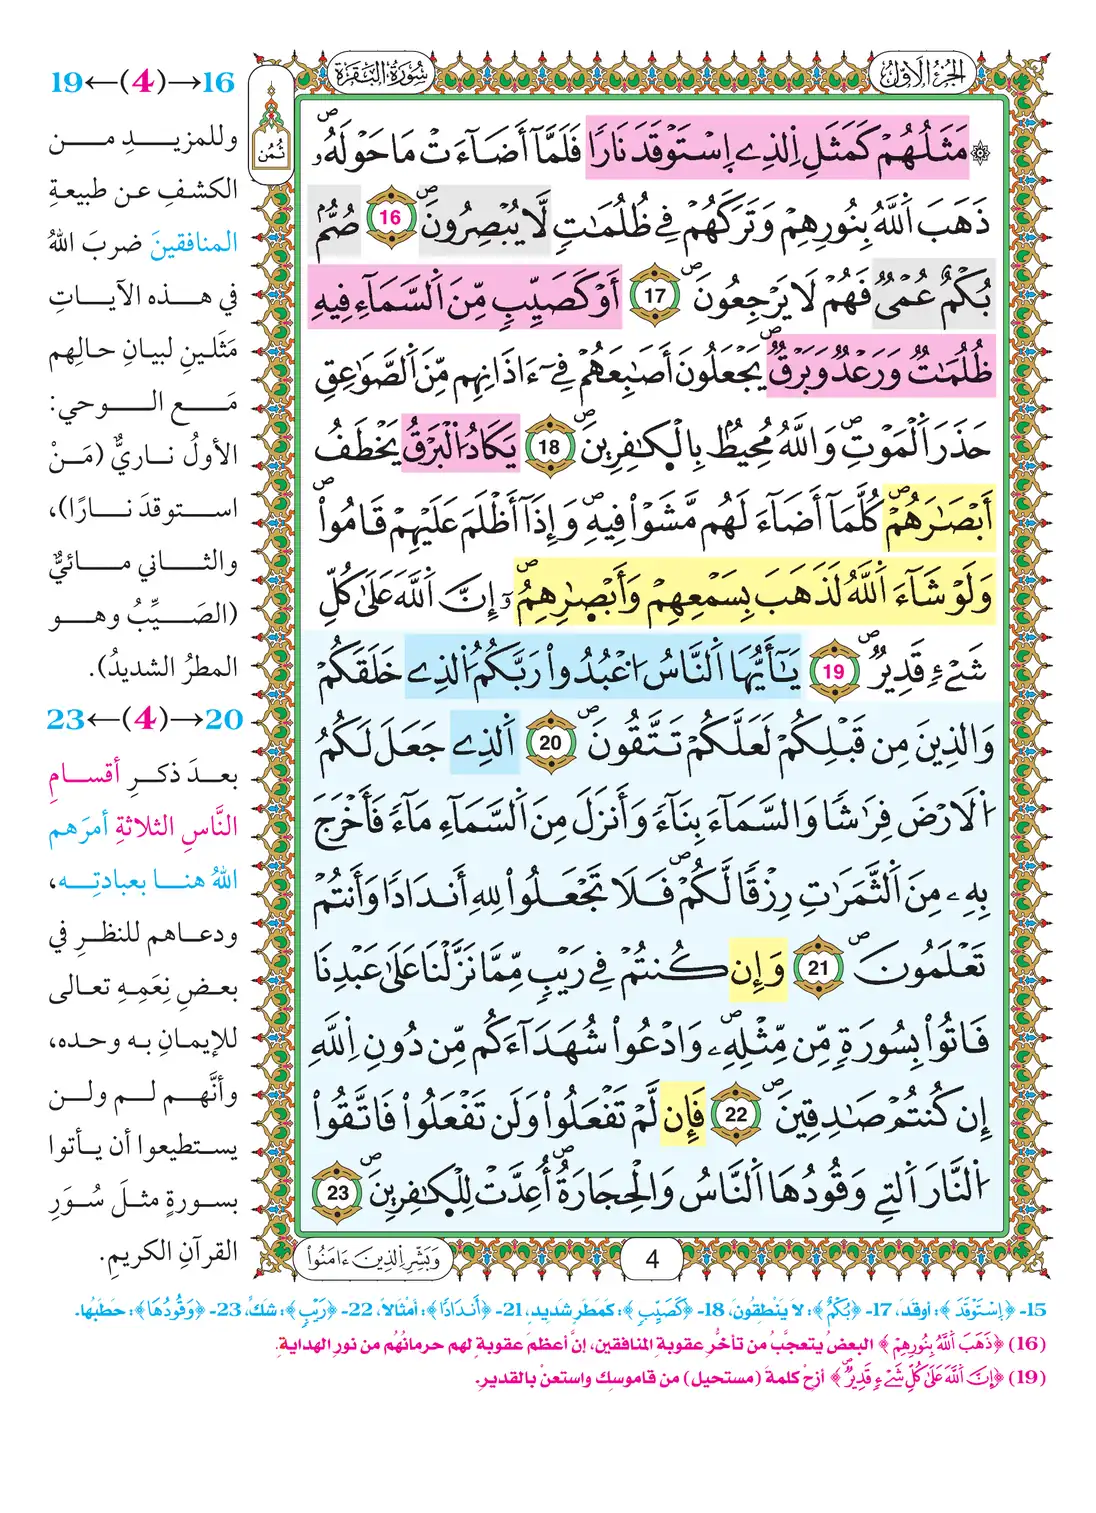 الجزء الأول
سورة البقرة
ثمن
۞ مَثَلُهُمْ كَمَثَلِ اِ۬لذِے اِ۪سْتَوْقَدَ نَارٗا فَلَمَّآ أَضَآءَتْ مَا حَوْلَهُۥ
ذَهَبَ اَ۬للَّهُ بِنُورِهِمْ وَتَرَكَهُمْ فِے ظُلُمَٰتٖ لَّا يُبْصِرُونَۖ 16 صُمُّۢ
بُكْمٌ عُمْيٞ فَهُمْ لَا يَرْجِعُونَۖ 17 أَوْ كَصَيِّبٖ مِّنَ اَ۬لسَّمَآءِ فِيهِ
ظُلُمَٰتٞ وَرَعْدٞ وَبَرْقٞۖ يَجْعَلُونَ أَصَٰبِعَهُمْ فِےٓ ءَاذَانِهِم مِّنَ اَ۬لصَّوَٰعِقِ
حَذَرَ اَ۬لْمَوْتِۖ وَاللَّهُ مُحِيطُۢ بِالْكٰ۪فِرِينَۖ 18 يَكَادُ اُ۬لْبَرْقُ يَخْطَفُ
أَبْصَٰرَهُمْۖ كُلَّمَآ أَضَآءَ لَهُم مَّشَوْاْ فِيهِۖ وَإِذَآ أَظْلَمَ عَلَيْهِمْ قَامُواْۖ
وَلَوْ شَآءَ اَ۬للَّهُ لَذَهَبَ بِسَمْعِهِمْ وَأَبْصٰ۪رِهِمُۥٓۖ إِنَّ اَ۬للَّهَ عَلَىٰ كُلِّ
شَےْءٖ قَدِيرٞۖ 19 يَٰٓأَيُّهَا اَ۬لنَّاسُ اُ۟عْبُدُواْ رَبَّكُمُ اُ۬لذِے خَلَقَكُمْ
وَالذِينَ مِن قَبْلِكُمْ لَعَلَّكُمْ تَتَّقُونَۖ 20 اَ۬لذِے جَعَلَ لَكُمُ
اُ۬لَارْضَ فِرَٰشٗا وَالسَّمَآءَ بِنَآءٗ وَأَنزَلَ مِنَ اَ۬لسَّمَآءِ مَآءٗ فَأَخْرَجَ
بِهِۦ مِنَ اَ۬لثَّمَرَٰتِ رِزْقٗا لَّكُمْۖ فَلَا تَجْعَلُواْ لِلهِ أَندَادٗا وَأَنتُمْ
تَعْلَمُونَۖ 21 وَإِن كُنتُمْ فِے رَيْبٖ مِّمَّا نَزَّلْنَا عَلَىٰ عَبْدِنَا
فَاتُواْ بِسُورَةٖ مِّن مِّثْلِهِۦۖ وَادْعُواْ شُهَدَآءَكُم مِّن دُونِ اِ۬للَّهِ
إِن كُنتُمْ صَٰدِقِينَۖ 22 فَإِن لَّمْ تَفْعَلُواْ وَلَن تَفْعَلُواْ فَاتَّقُواْ
اُ۬لنَّارَ اَ۬لتِے وَقُودُهَا اَ۬لنَّاسُ وَالْحِجَارَةُۖ أُعِدَّتْ لِلْكٰ۪فِرِينَۖ 23
4
وَبَشِّرِ اِ۬لذِينَ ءَامَنُواْ
16→(4)←19
وللمزيدِ من
الكشفِ عن طبيعةِ
المنافقينَ ضربَ اللهُ
في هذه الآياتِ
مَثَلينِ لبيانِ حالِهم
مَع الوحي:
الأولُ ناريٌّ (مَنْ
استوقدَ نارًا)،
والثاني مائيٌّ
(الصَيِّبُ وهو
المطرُ الشديدُ).
20→(4)←23
بعدَ ذكرِ أقسامِ
النَّاسِ الثلاثةِ أمرَهم
اللهُ هنا بعبادتِه،
ودعاهم للنظرِ في
بعضِ نِعَمِهِ تعالى
للإيمانِ به وحده،
وأنَّهم لم ولن
يستطيعوا أن يأتوا
بسورةٍ مثلَ سُوَرِ
القرآنِ الكريمِ.
15- ﴿اِ۪سْتَوْقَدَ﴾: أوقدَ، 17- ﴿بُكْمٌ﴾: لا يَنْطِقُونَ، 18- ﴿كَصَيِّبٖ﴾: كمَطَرٍ شديدٍ، 21- ﴿أَندَادٗا﴾: أمْثَالاً، 22- ﴿رَيْبٖ﴾: شكٍّ، 23- ﴿وَقُودُهَا﴾: حَطَبُها.
(16) ﴿ذَهَبَ اَ۬للَّهُ بِنُورِهِمْ﴾ البعضُ يتعجَّبُ من تأخُّرِ عقوبةِ المنافقين، إنَّ أعظمَ عقوبةٍ لهم حرمانُهُم من نورِ الهدايةِ.
(19) ﴿إِنَّ اَ۬للَّهَ عَلَىٰ كُلِّ شَےْءٖ قَدِيرٞۖ﴾ أزِحْ كلمةَ (مستحيل) من قاموسِك واستعنْ بالقديرِ.